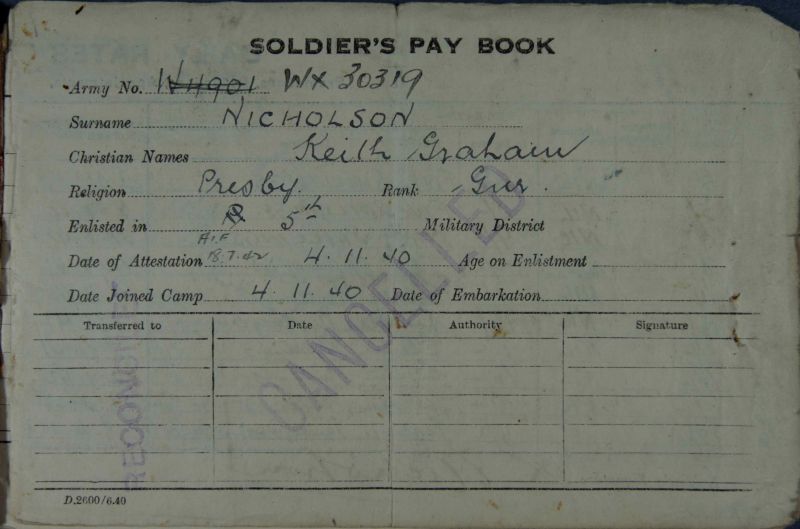 SOLDIER'S PAY BOOK
Army No. W11901 WX 30319
Surname NICHOLSON
Christian Names Keith Graham
Religion Presby. Rank Gnr.
Enlisted in 5th Military District
A.I.F
Date of Attestation 18.7.42 4.11.40 Age on Enlistment
Date Joined Camp 4.11.40 Date of Embarkation
Transferred to Date Authority Signature
CANCELLED
D.2600/6.40